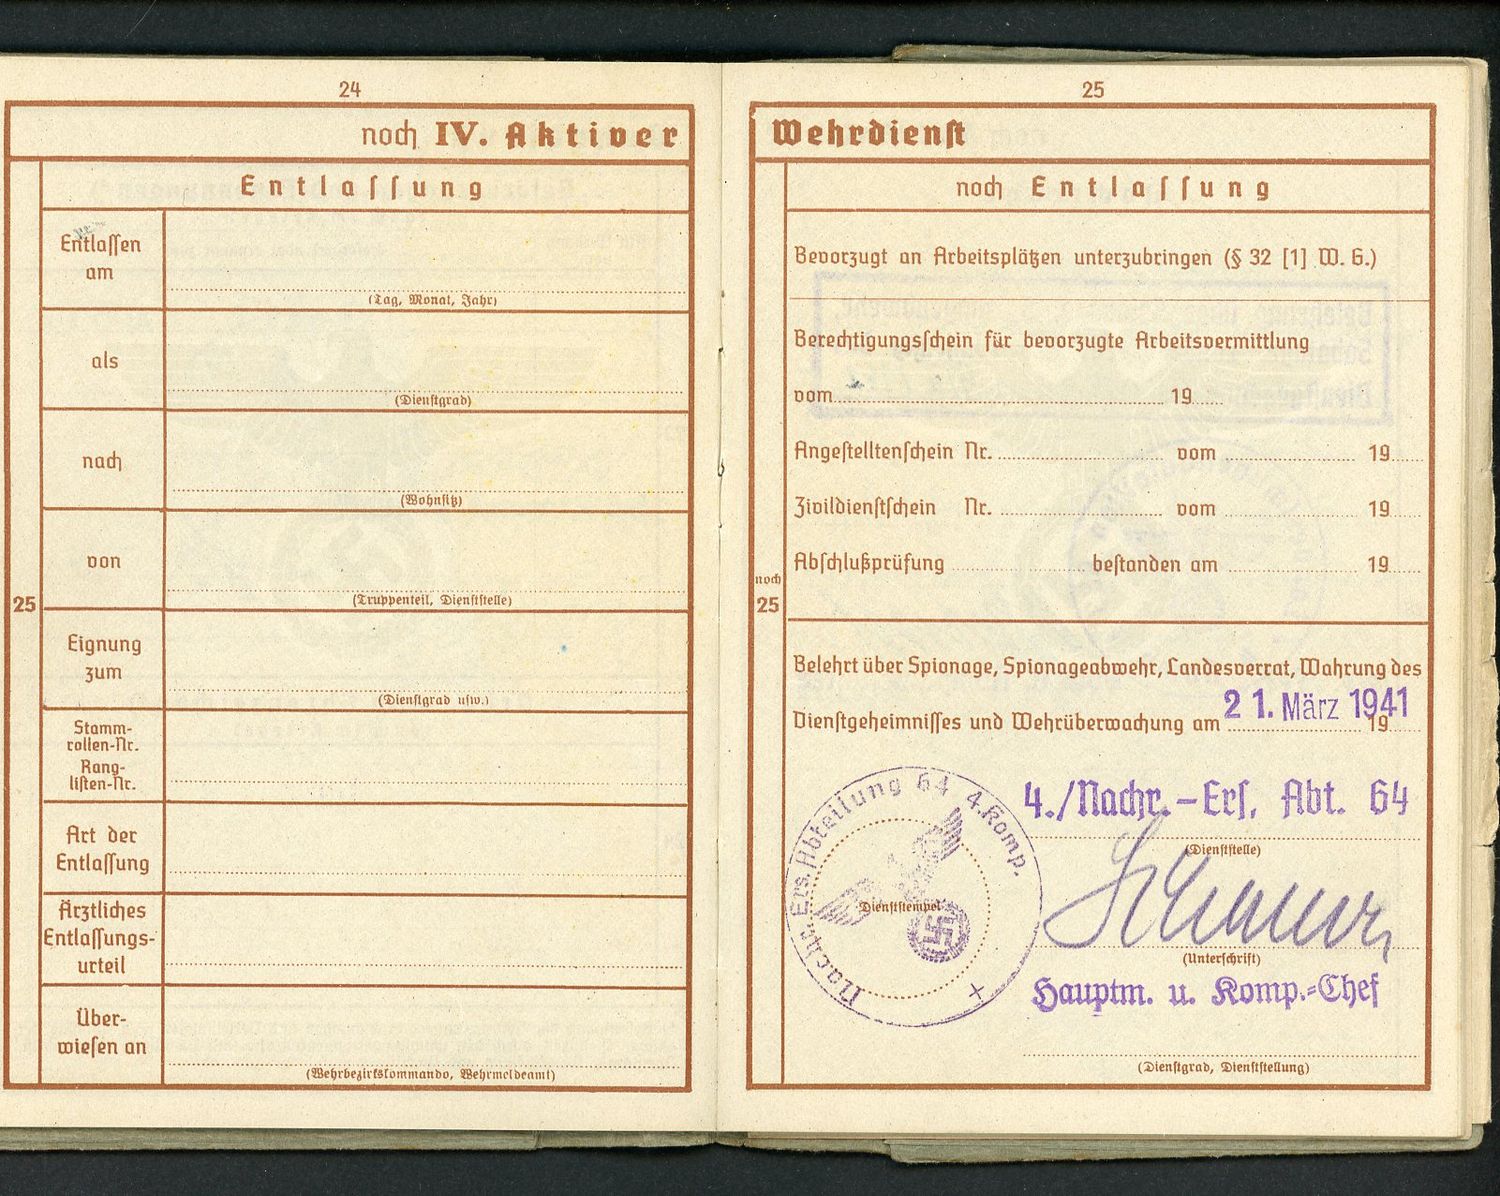 24
noch IV. Aktiver
Entlassung
Entlassen
am
(Tag, Monat, Jahr)
als
(Dienstgrad)
nach
(Wohnsitz)
von
(Truppenteil, Dienststelle)
25
Eignung
zum
(Dienstgrad usw.)
Stamm-
rollen-Nr.
Rang-
listen-Nr.
Art der
Entlassung
Ärztliches
Entlassungs-
urteil
Über-
wiesen an
(Wehrbezirkskommando, Wehrmeldeamt)
25
Wehrdienst
noch Entlassung
Bevorzugt an Arbeitsplätzen unterzubringen (§ 32 [1] W. G.)
Berechtigungsschein für bevorzugte Arbeitsvermittlung
vom 19
Angestelltenschein Nr. vom 19
Zivildienstschein Nr. vom 19
Abschlußprüfung bestanden am 19
noch
25
Belehrt über Spionage, Spionageabwehr, Landesverrat, Wahrung des
Dienstgeheimnisses und Wehrüberwachung am 21. März 1941 19
4./Nachr.-Ers. Abt. 64
(Dienststelle)
Nachr. Ers. Abteilung 64 4. Komp.
Dienststempel
(Unterschrift)
Hauptm. u. Komp.-Chef
(Dienstgrad, Dienststellung)